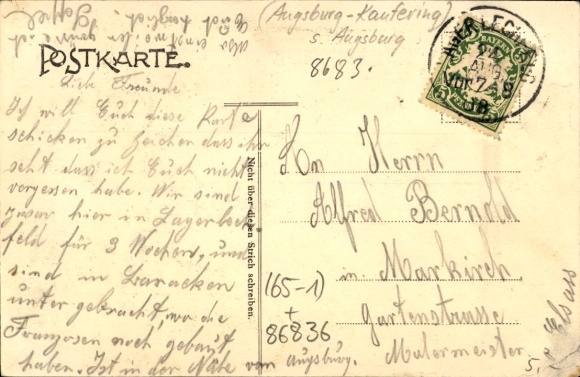 (Augsburg-Kaufering)
s. Augsburg
8683.
POSTKARTE.
BAYERN
5
Liebe Freunde
Ich will Euch diese Karte
schicken zu Zeichen dass ihr
seht dass ich Euch nicht
vergessen habe. Wir sind
zwar hier in Lagerlech
feld für 3 Wochen, und
sind in Baracken
untergebracht, wo die
Franzosen noch gebaut
haben. Ist in der Nähe von Augsburg.
Nicht über diesen Strich schreiben.
An Herrn
Alfred Bernold
in Markirch
Gartenstrasse
Malermeister
Elsass
165-1)
+
86836
5,